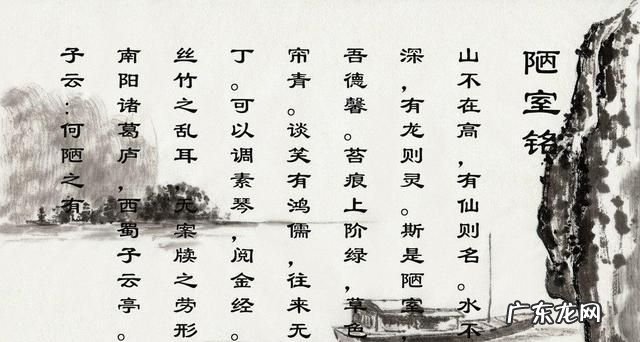 陋室铭
山不在高，有仙则名。水不
深，有龙则灵。斯是陋室，
吾德馨。苔痕上阶绿，草色
帘青。谈笑有鸿儒，往来无
丁。可以调素琴，阅金经。
丝竹之乱耳 无案牍之劳形
南阳诸葛庐，西蜀子云亭。
子云：何陋之有
广东龙网